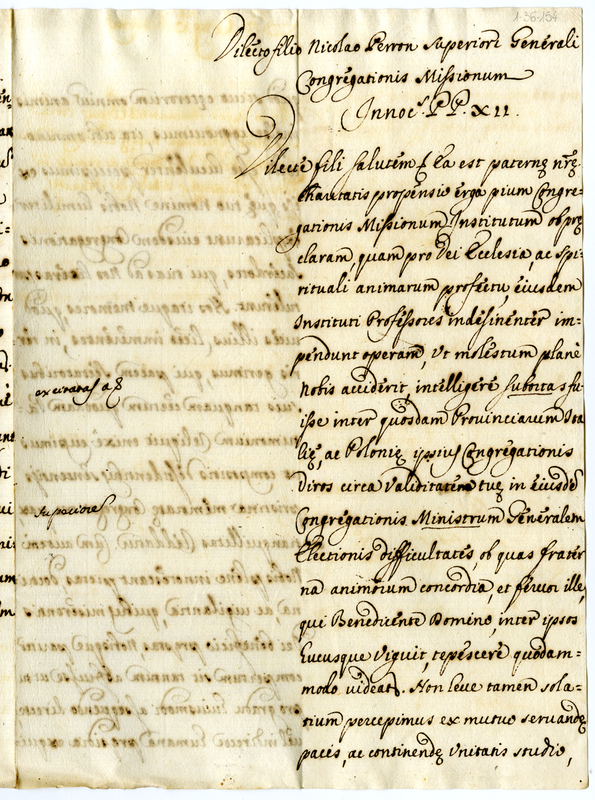 1-36-154
Dilecto filio Nicolao Perron Superiori Generali
Congregationis Missionum
Innoc.s PP. XII.
Dilecte fili salutem &. Ea est paternę nrę
Charitatis propensio erga pium Congre=
gationis Missionum Institutum ob prę
claram, quam pro Dei Ecclesia, ac spi-
rituali animarum profectu, eiusdem
Instituti Professores indesinenter im=
pendunt operam, Ut molestum planè
nobis acciderit, intelligere subortas fu-
excitatas
isse inter quosdam Provinciarum Ita
lię, ac Polonię ipsius Congregationis
Viros circa Validitatem tuę in eiusdẽ
superiorẽ
Congregationis Ministrum Generalem
Electionis difficultates, ob quas frater
na animorum concordia, et fervor ille,
qui Benedicente Domino, inter ipsos
hucusque Viguit, tepescere quodam=
modo videat.r. Non leve tamen sola-
tium percepimus ex mutuo servandę
pacis, ac continendę Unitatis studio,